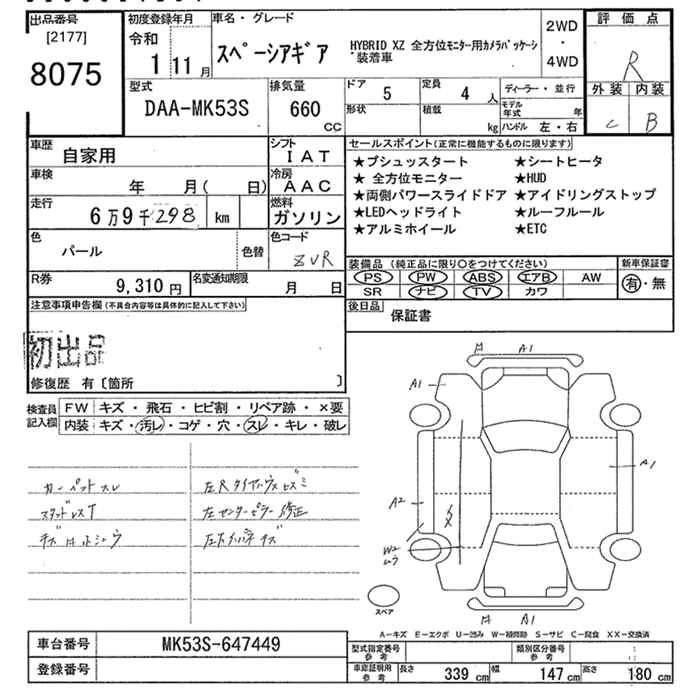 出品番号
[2177]
8075
初度登録年月
令和
1 11月
車名・グレード
スペーシアギア
HYBRID XZ 全方位モニター用カメラパッケージ装着車
2WD
・
4WD
評価点
R
外装 内装
C B
型式
DAA-MK53S
排気量
660
CC
ドア 5
定員 4 人
形状
積載 kg
ディーラー・並行
モデル年式 年
ハンドル 左・右
車歴 自家用
シフト IAT
車検 年 月( 日)
冷房 AAC
走行 6万9千298 km
燃料 ガソリン
色 パール
色替
色コード ZVR
R券 9,310円
名変通知期限 月 日
セールスポイント(正常に機能するものに限ります)
★プシュッスタート ★シートヒータ
★ 全方位モニター ★HUD
★両側パワースライドドア ★アイドリングストップ
★LEDヘッドライト ★ルーフルール
★アルミホイール ★ETC
装備品 (純正品に限り○をつけてください) 新車保証書
PS PW ABS エアB AW 有・無
SR ナビ TV カワ
後日品
保証書
注意事項申告欄(不具合内容等は具体的に記入して下さい)
初出品
修復歴 有〔箇所 〕
検査員記入欄
FW キズ・飛石・ヒビ割・リペア跡・×要
内装 キズ・汚レ・コゲ・穴・スレ・キレ・破レ
カーペットスレ
スタッドレスT
左センターピラー修正
A1
A1
A1
A2
W2
ムラ
A1
スペア
A-キズ E-エクボ U-凹み W-補修跡 S-サビ C-腐食 XX-交換済
車台番号 MK53S-647449
登録番号
型式指定番号参考
類別区分番号参考
車庫証明用参考 長さ 339 cm 幅 147 cm 高さ 180 cm